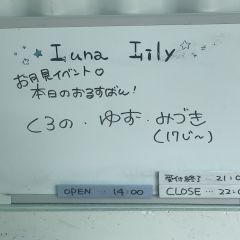 Luna Lily
お月見イベント♡
本日のおるすばん!
くろの・ゆず・みづき
(17じ〜)
受付終了…21:0
OPEN…14:00
CLOSE…22:0